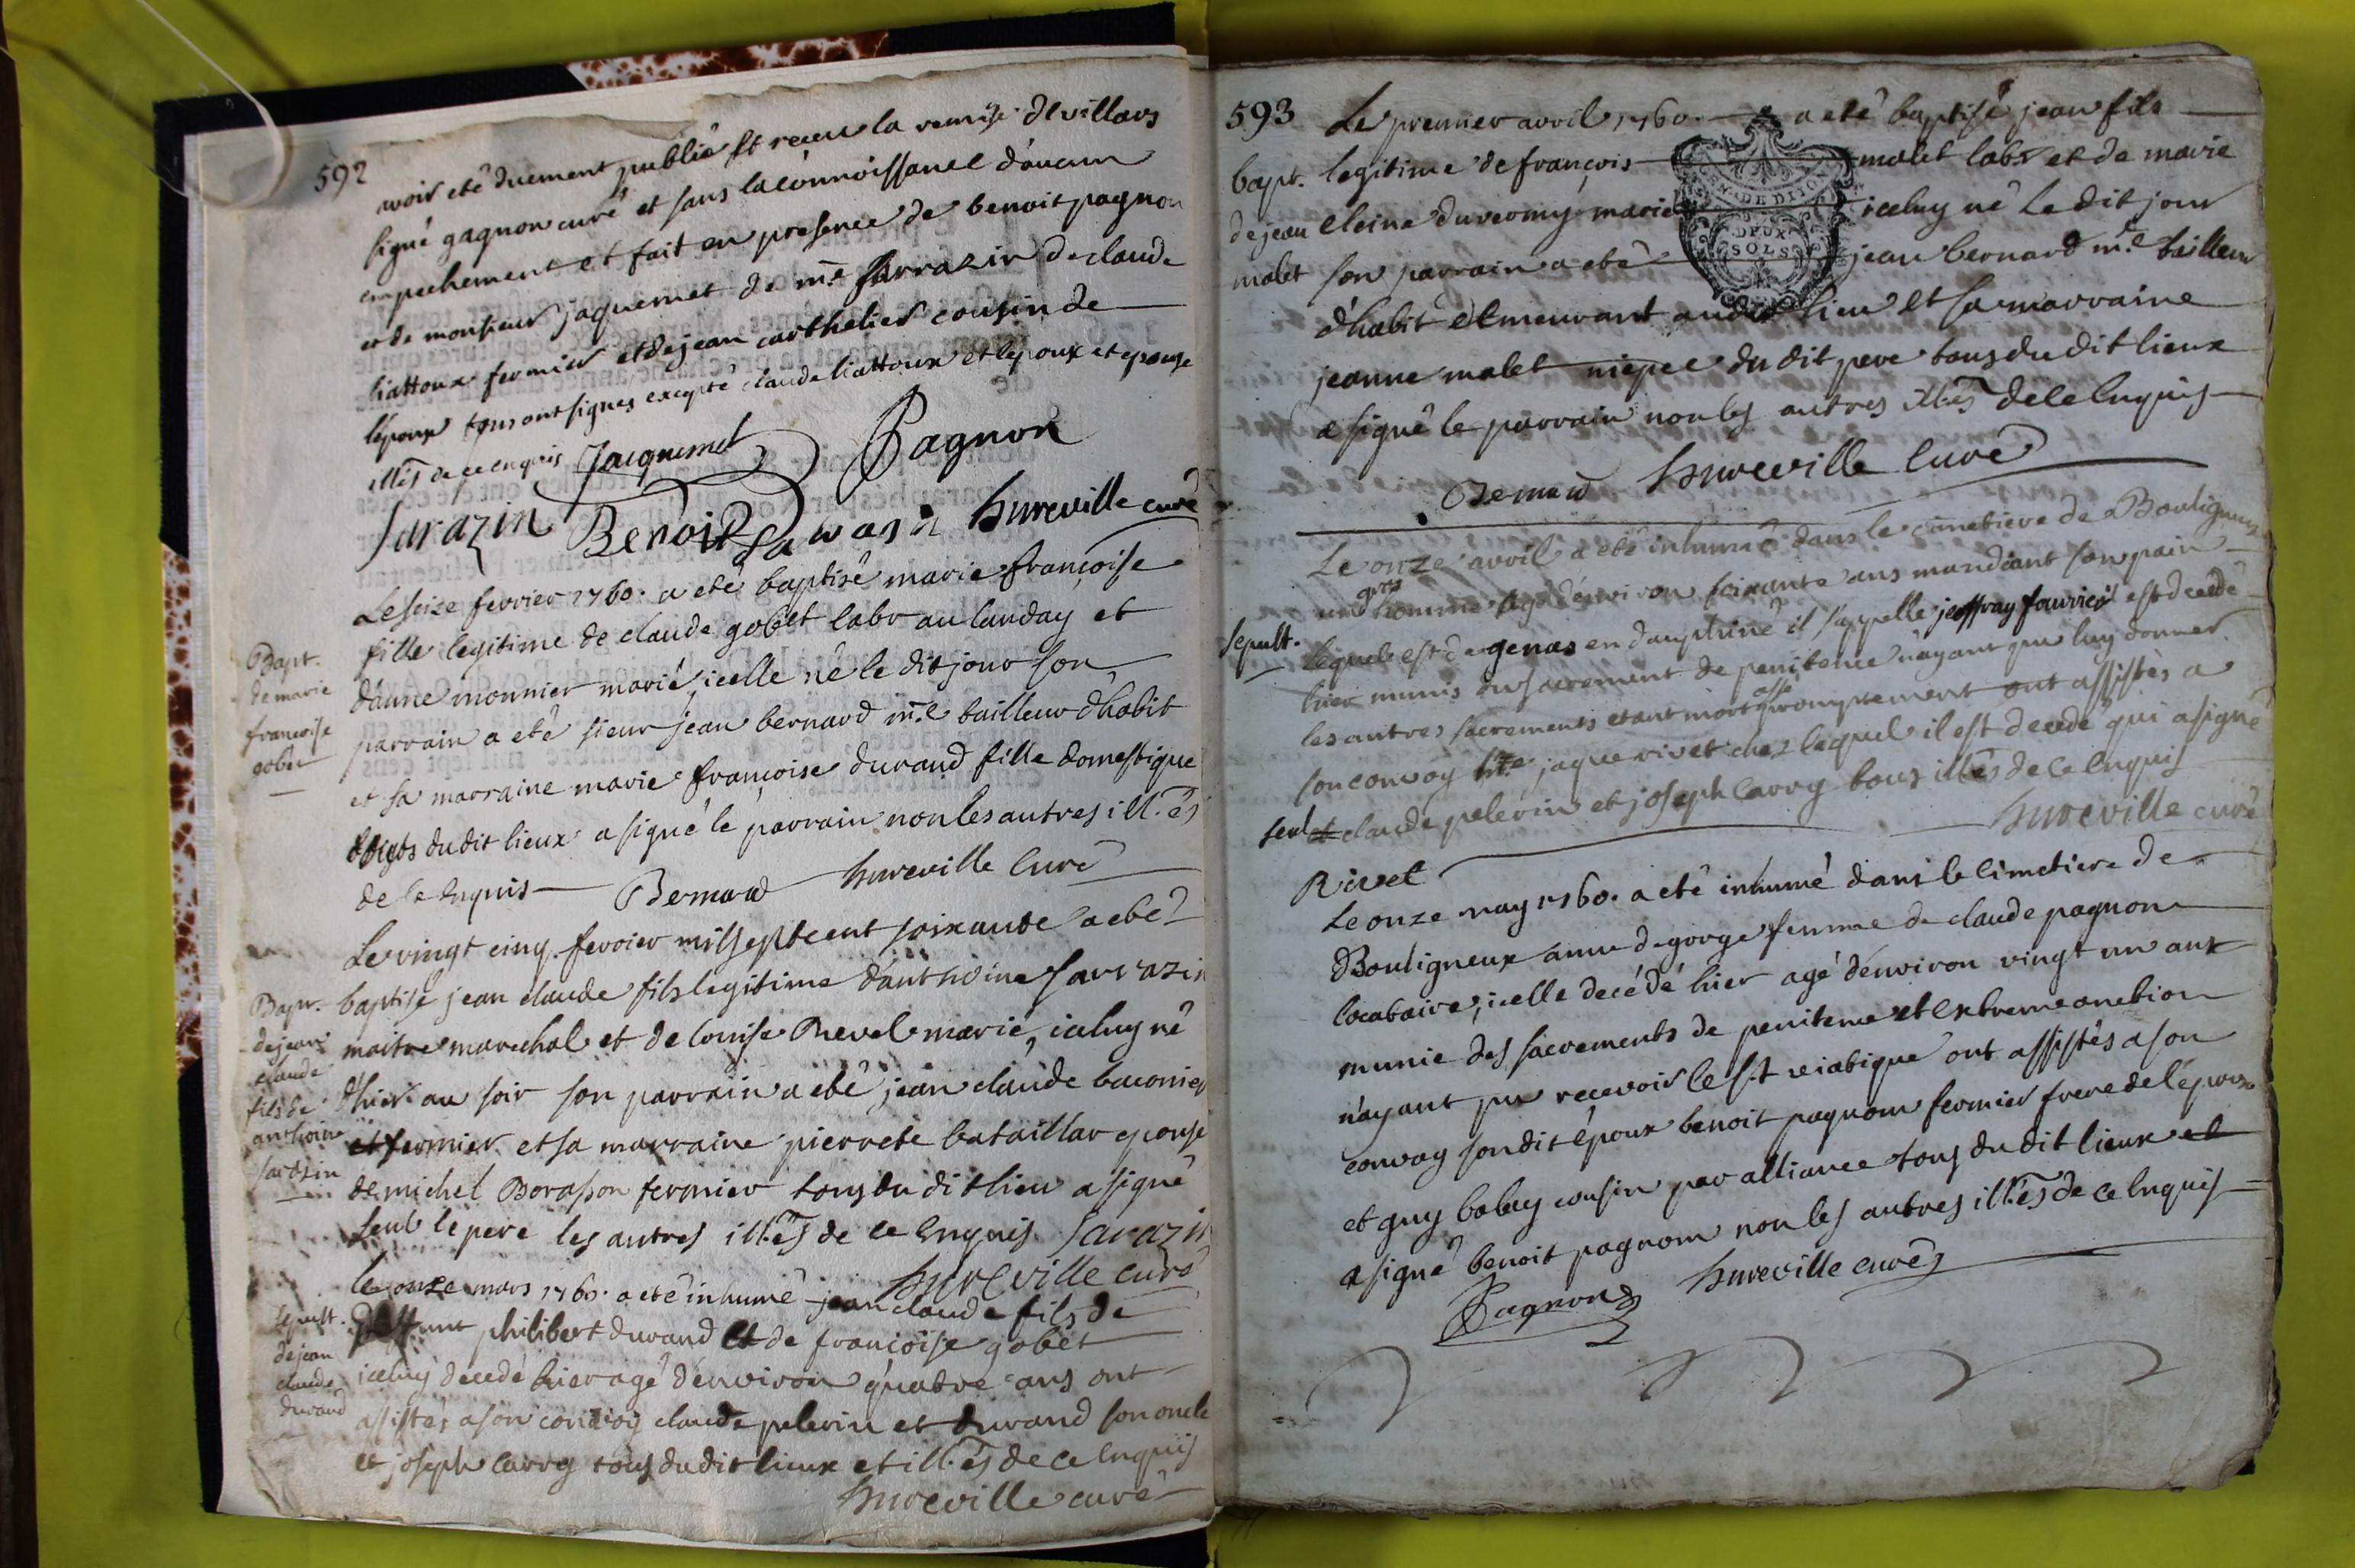 592
avoir eté duement publié et receu la remise de villars
signé gagnon curé et sans la connoissance d'aucun
empechement et fait en presence de benoit pagnon
et de monsieur jaquemet de m.e sarrazin de claude
liattoux fermier et de jean carthelier cousin de
l'epoux tous ont signes excepté claude liattoux et lepoux et epouse
illes de ce enquis Jacquemet Pagnon
Sarazin Benoit hureville curé
Le seize fevrier 1760. a eté baptisé marie françoise
fille legitime de claude gobet labr au landay et
d'anne monnier marié, icelle né le dit jour son
parrain a eté sieur jean bernard m.e tailleur d'habit
et sa marraine marie françoise durand fille domestique
dudit lieux a signé le parrain non les autres ill.es
de ce enquis Bernard hureville curé
Bapt.
de marie
francoise
gobet
Le vingt cinq fevrier mil sept cent soixante a eté
baptisé jean claude fils legitime d'anthoine sarrazin
maitre marechal et de louise Revel marié, iceluy né
hier au soir son parrain a eté jean claude baconier
et fermier et sa marraine pierrete bataillar epouse
de michel Borasson fermier tous du dit lieu a signé
seul le pere les autres ill.es de ce enquis Sarazin
hureville curé
Bapt.
de jean
claude
fils de
anthoine
sarazin
le onze mars 1760. a eté inhumé jean claude fils de
deffunt philibert durand et de françoise gobet
iceluy decedé hier agé d'environ quatre ans ont
assistés a son convoy claude pelerin et durand son oncle
et joseph carry tous du dit lieux et ill.es de ce enquis
hureville curé
Sepult.
de jean
claude
durand
593
Le premier avril 1760. a eté baptisé jean fils
legitime de françois malet labr et de marie
cleine duvernuy marié iceluy né le dit jour
son parrain a eté jean bernard m.e tailleur
d'habit demeurant audit lieu et sa marraine
jeanne malet niepce du dit pere tous du dit lieux
a signé le parrain non les autres ill.es de ce enquis
Bernard hureville curé
bapt.
de jean
malet
GEN. DE DIJON
DEUX
SOLS
Le onze avril a eté inhumé dans le cimetiere de Bouligneux
un homme agé d'environ soixante ans mandiant son pain
lequel est de genas en dauphiné il s'appelle jeoffray fourrier est decedé
hier munis du sacrement de penitence n'ayant pu luy donner
les autres sacrements etant mort asse promptement ont assistés a
son convoy jaque rivet chez lequel il est decedé qui a signé
seul et claude pelerin et joseph carry tous illes de ce enquis
hureville curé
Rivet
sepult.
Le onze may 1760. a eté inhumé dans le cimetiere de
Bouligneux anne degorge femme de claude pagnon
locataire, icelle decédé hier agé d'environ vingt un ans
munie des sacrements de penitence et extreme onction
n'ayant pu recevoir le s.t viatique ont assistés a son
convoy son dit epoux benoit pagnon fermier frere de lépoux
et guy baluy cousin par alliance tous du dit lieux et
a signé benoit pagnon non les autres ill.es de ce enquis
Pagnon hureville curé